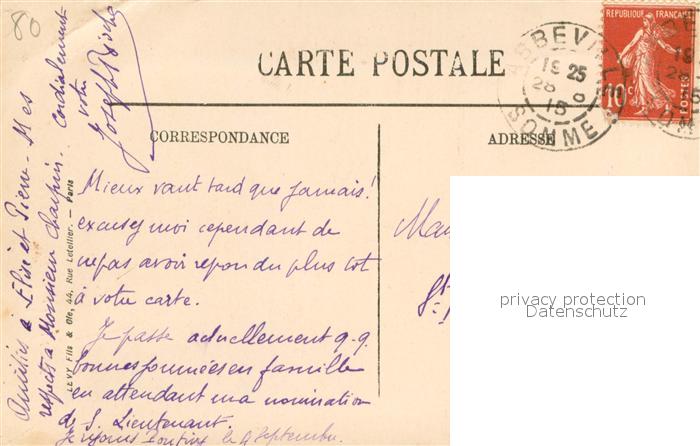 80
CARTE POSTALE
REPUBLIQUE FRANÇAISE
10 c
POSTES
ABBEVILLE
19 25
28 8
15
SOMME
CORRESPONDANCE
ADRESSE
Mieux vaut tard que jamais!
excusez moi cependant de
ne pas avoir repondu plus tot
à votre carte.
Je passe actuellement q.q.
bonnes journées en famille
en attendant ma nomination
de S. Lieutenant.
Je rejoins le 4 Septembre.
Amitiés à Elise et Pierre - Mes
respects à Monsieur
Cordialement
votre
Joseph
LEVY Fils & Cie, 44, Rue Letellier. — Paris
privacy protection
Datenschutz